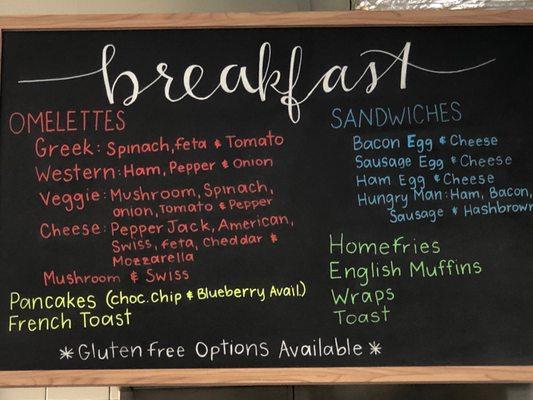 breakfast
OMELETTES
Greek: Spinach, feta & Tomato
Western: Ham, Pepper & Onion
Veggie: Mushroom, Spinach,
onion, Tomato & Pepper
Cheese: Pepper Jack, American,
Swiss, feta, Cheddar &
Mozzarella
Mushroom & Swiss
Pancakes (choc.chip & Blueberry Avail.)
French Toast
SANDWICHES
Bacon Egg & Cheese
Sausage Egg & Cheese
Ham Egg & Cheese
Hungry Man: Ham, Bacon,
Sausage & Hashbrown
Homefries
English Muffins
Wraps
Toast
*Gluten free Options Available*